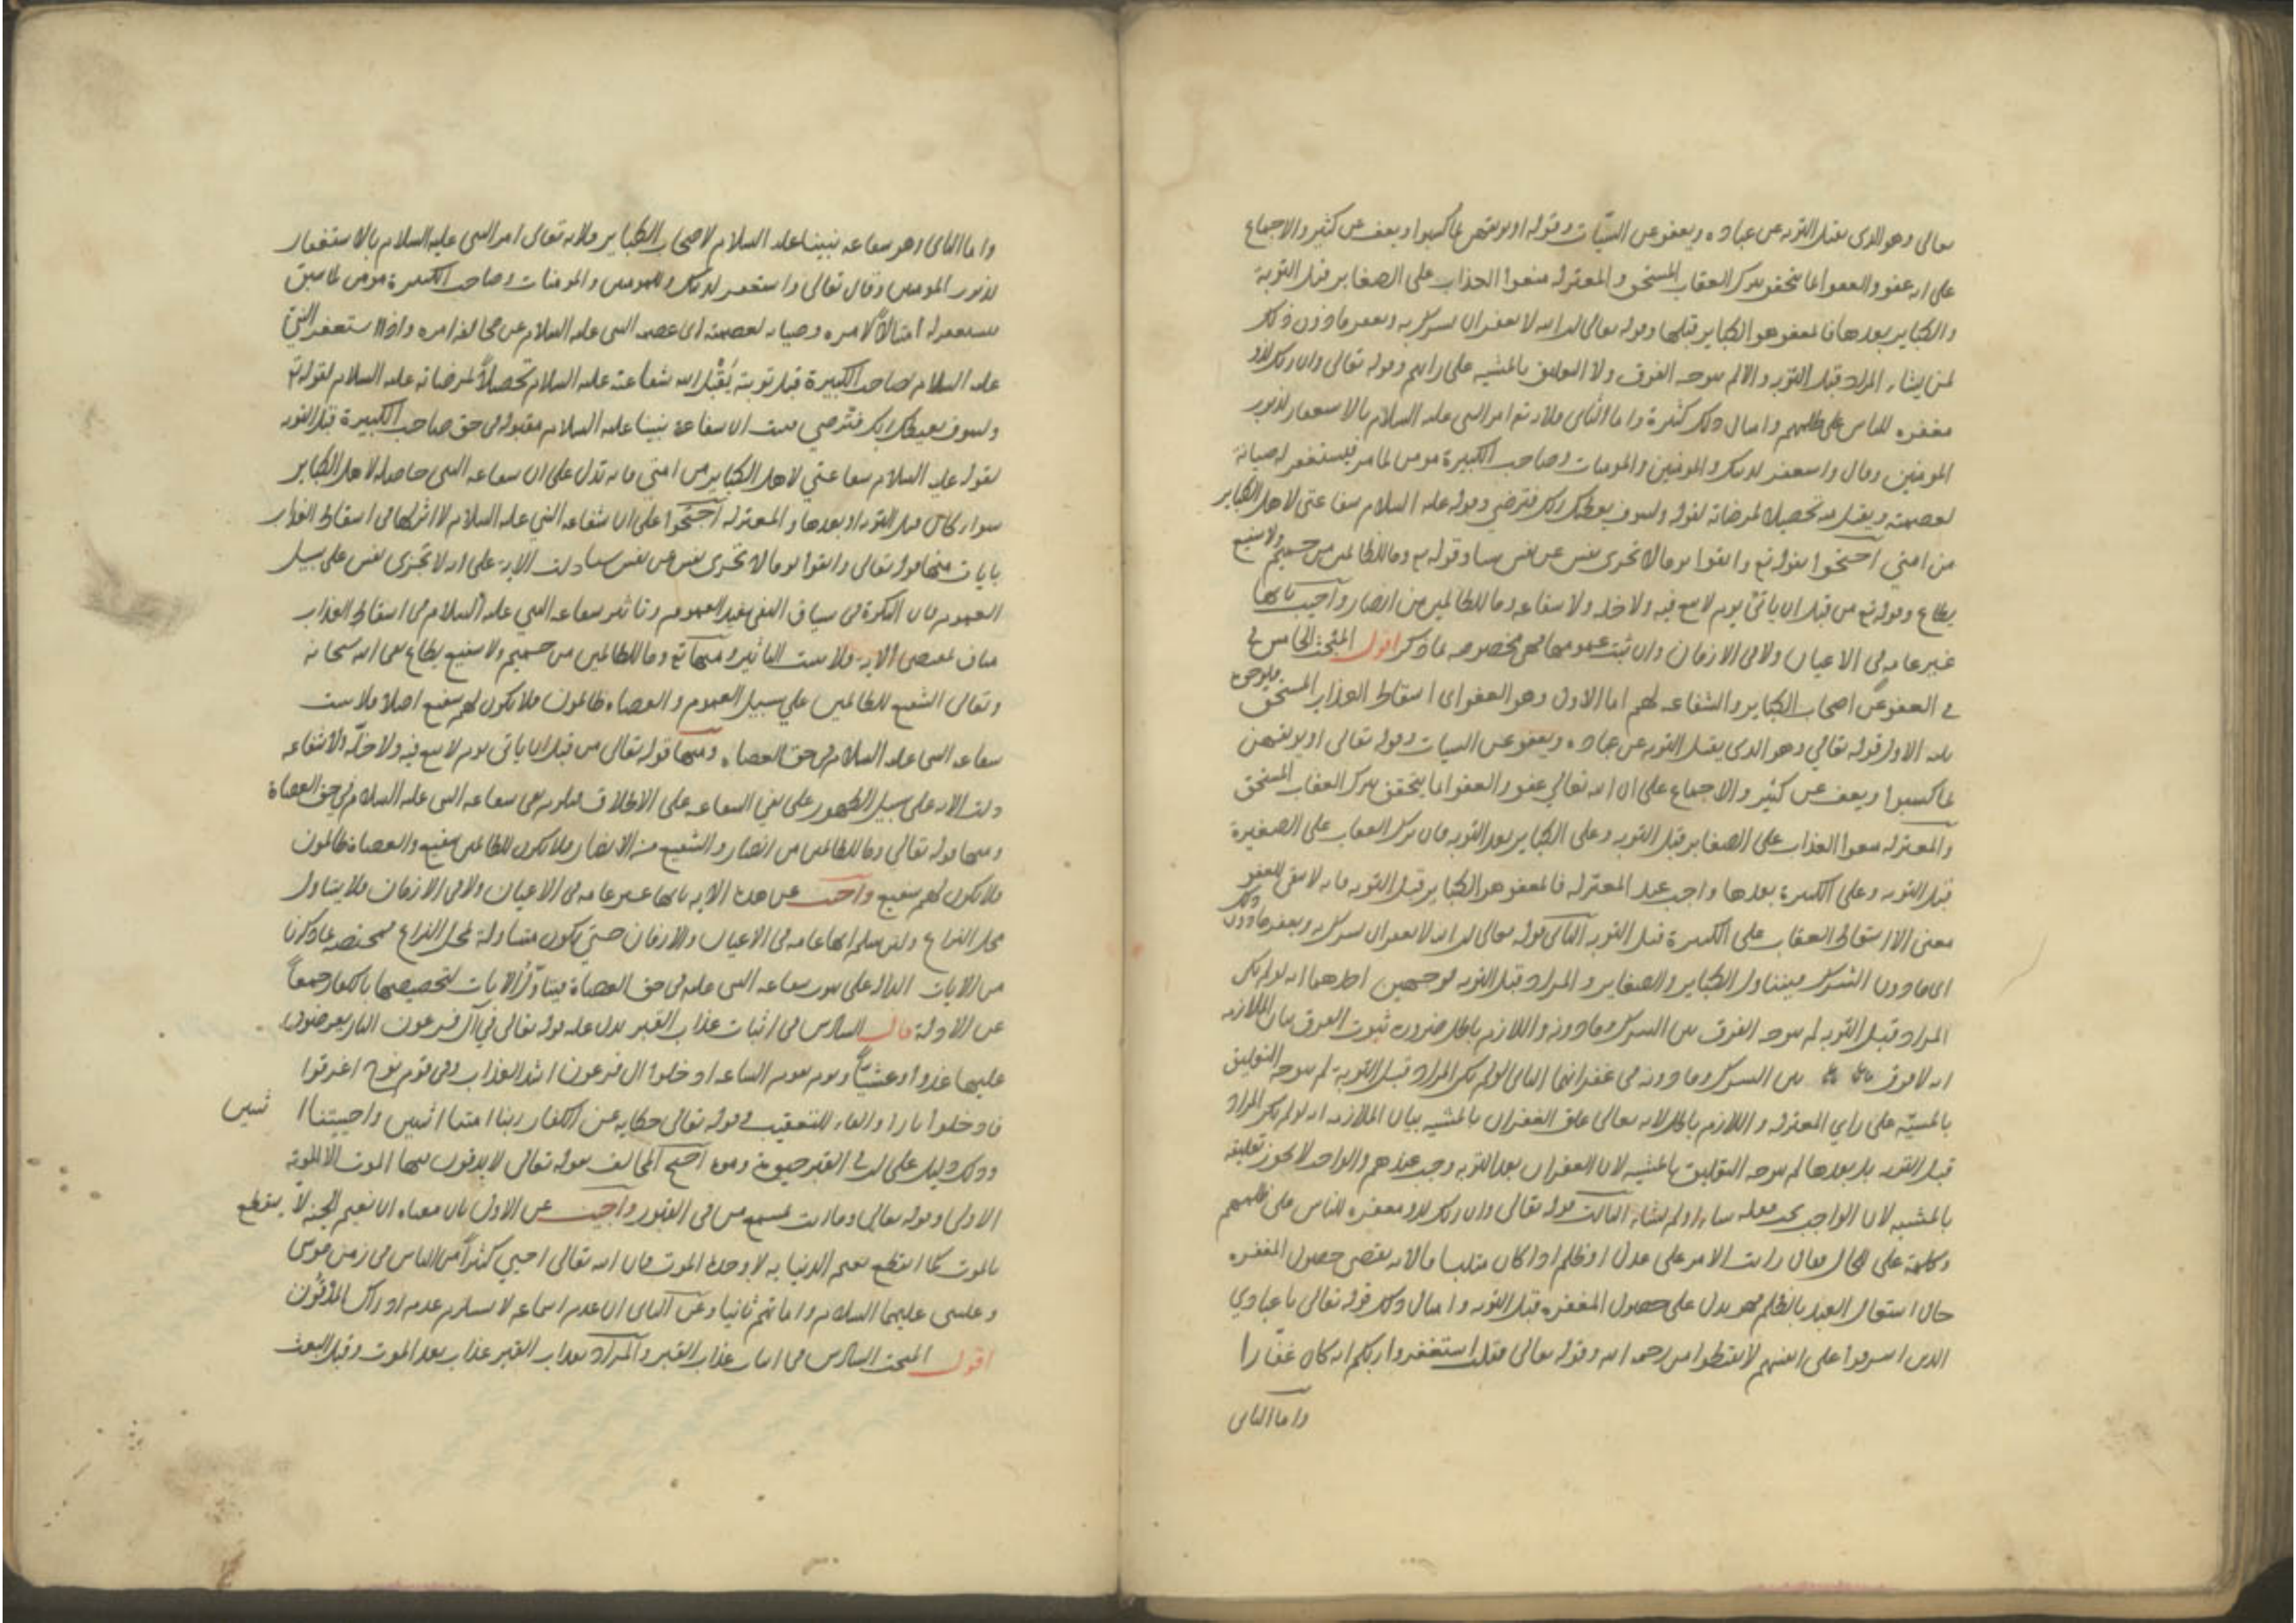 تعالى وهو الذى يقبل التوبه عن عباده ويعفو عن السيّات وقوله او يوبقهن بما كسبوا ويعف عن كثير والاجماع
على انه عفو والعفو انما يتحقق بترك العقاب المستحق والمعتزله منعوا العذاب على الصغاير قبل التوبة
والكباير بعدها فالمعفو هو الكباير قبلها وقوله تعالى ان الله لا يغفر ان يشرك به ويغفر مادون ذلك
لمن يشاء المراد قبل التوبه والا لم يتوجه الفرق ولا التعليق بالمشيه على رايهم وقوله تعالى وان ربك لذو
مغفره للناس على ظلمهم وامثال ذلك كثيرة واما الثانى فلانه تع امر النبى عليه السلام بالاستغفار لذنوب
المومنين وقال واستغفر لذنبك وللمومنين والمومنات وصاحب الكبيرة مومن لما مر فيستغفر له صيانة
لعصمته ويقبل منه تحصيلا لمرضاته لقوله ولسوف يعطيك ربك فترضي وقوله عليه السلام شفاعتى لاهل الكباير
من امتي احتجوا بقوله تع واتقوا يوما لا تجزى نفس عن نفس شيا وقوله تع وما للظالمين من حميم ولا شفيع
يطاع وقوله تع من قبل ان ياتي يوم لا بيع فيه ولا خله ولا شفاعه وما للظالمين من انصار واجيب بانها
غير عامه فى الاعيان ولا فى الازمان وان ثبت عمومها فهى مخصوصه بما ذكر اقول المبحث الخامس فى
فى العفو عن اصحاب الكباير والشفاعه لهم اما الاول وهو العفو اى اسقاط العذاب المستحق فلوجوه
ثلثه الاول قوله تعالي وهو الذى يقبل التوبه عن عباده ويعفو عن السيات وقوله تعالى او يوبقهن
بما كسبوا ويعف عن كثير والاجماع على ان الله تعالي عفو والعفو انما يتحقق بترك العقاب المستحق
والمعتزله منعوا العذاب على الصغاير قبل التوبه وعلى الكباير بعد التوبه فان ترك العقاب على الصغيرة
قبل التوبه وعلى الكبيرة بعدها واجب عند المعتزله فالمعفو هو الكباير قبل التوبه فانه لا يبقى للعفو
معنى الا اسقاط العقاب على الكبيرة قبل التوبه الثانى قوله تعالى ان الله لا يغفر ان يشرك به ويغفر ما دون ذلك
اى ما دون الشرك فيتناول الكباير والصغاير والمراد قبل التوبه لوجهين احدهما انه لو لم يكن
المراد قبل التوبه لم يتوجه الفرق بين الشرك وما دونه واللازم باطل ضروره ثبوت الفرق بيان الملازمه
انه لا فرق بين الشرك وما دونه فى غفرانهما الثانى لو لم يكن المراد قبل التوبة لم يتوجه التعليق
بالمشيّه على راي المعتزله واللازم باطل لانه تعالى علق الغفران بالمشيه بيان الملازمه انه لو لم يكن المراد
قبل التوبه بل بعدها لم يتوجه التعليق بالمشيه لان الغفران بعد التوبه واجب عندهم والواجب لا يجوز تعليقه
بالمشيه لان الواجب يجب فعله شاء او لم يشاء الثالث قوله تعالى وان ربك لذو مغفره للناس على ظلمهم
وكلمة على للحال يقال رايت الامر على عدل او ظلم اذا كان متلبسا فالايه يقتضى حصول المغفره
حال اشتغال العبد بالظلم فهو يدل على حصول المغفره قبل التوبه وامثال ذلك قوله تعالى يا عبادي
الذين اسرفوا على انفسهم لا تقنطوا من رحمه الله وقوله تعالى فقلت استغفروا ربكم انه كان غفّارا
واما الثانى
واما الثانى وهو شفاعه نبينا عليه السلام لاصحاب الكباير فلانه تعالى امر النبى عليه السلام بالاستغفار
لذنوب المومنين وقال تعالى واستغفر لذنبك وللمومنين والمومنات وصاحب الكبيرة مومن لما سبق
فيستغفر له امتثالًا لامره وصيانه لعصمته اى عصمه النبى عليه السلام عن مخالفه امره واذا استغفر النبيّ
عليه السلام لصاحب الكبيرة قبل توبته يُقبل الله شفاعته عليه السلام تحصيلًا لمرضاته عليه السلام لقوله تع
ولسوف يعطيك ربك فترضي فثبت ان شفاعة نبينا عليه السلام مقبوله فى حق صاحب الكبيرة قبل التوبه
لقوله عليه السلام شفاعتي لاهل الكباير من امتي فانه تدل على ان شفاعه النبى حاصله لاهل الكباير
سواء كان قبل التوبه او بعدها والمعتزله احتجوا على ان شفاعه النبي عليه السلام لا اثر لها فى اسقاط العذاب
بايات منها قوله تعالى واتقوا يوما لا تجزى نفس عن نفس شيا دلت الاية على انه لا تجزى نفس على سبيل
العموم فان النكرة فى سياق النفى يفيد العموم وتاثير شفاعه النبي عليه السلام فى اسقاط العذاب
مناف لمقتضى الايه فلا يثبت التاثير ومنها قوله تع وما للظالمين من حميم ولا شفيع يطاع نفى الله سبحانه
وتعالى الشفيع للظالمين علي سبيل العموم والعصاه ظالمون فلا يكون لهم شفيع اصلا فلا يثبت
شفاعه النبى عليه السلام فى حق العصاه ومنها قوله تعالى من قبل ان ياتى يوم لا بيع فيه ولا خلّة ولا شفاعه
دلت الايه على سبيل الظهور على نفي الشفاعه على الاطلاق فيلزم نفى شفاعه النبى عليه السلام فى حق العصاة
ومنها قوله تعالي وما للظالمين من انصار والشفيع من الانصار فلا يكون للظالمين شفيع والعصاة ظالمون
فلا يكون لهم شفيع واجيب عن هذه الايه بانها غير عامه فى الاعيان ولا فى الازمان فلا يتناول
محل النزاع ولئن سلم انها عامه فى الاعيان والازمان حتي يكون متناولة لمحل النزاع فمختصه بما ذكرنا
من الايات الداله على ثبوت شفاعه النبى عليه فى حق العصاة فيتاوّل الايات لتخصيصها بالكفار جمعاً
عن الادلة قال السادس فى اثبات عذاب القبر يدل عليه قوله تعالى في آل فرعون النار يعرضون
عليها غدوا وعشيّاً ويوم تقوم الساعه ادخلوا ال فرعون اشد العذاب وفى قوم نوح اغرقوا
فادخلوا نارا والفاء للتعقيب وقوله تعالى حكايه عن الكفار ربنا امتنا اثنين واحييتنا اثنين
وذلك دليل على ان فى القبر حيوة وموتا احتج المخالف بقوله تعالى لا يذقون فيها الموت الا الموتة
الاولى وقوله تعالى وما انت بمسمع من فى القبور واجيب عن الاول بان معناه ان نعيم الجنه لا ينقطع
بالموت كما انقطع نعيم الدنيا به لا وحدة الموت فان الله تعالى احيي كثيراً من الناس فى زمن موسى
وعيسى عليهما السلام واماتهم ثانيا وعن الثانى ان عدم اسماعه لا يستلزم عدم ادراك المدفون
اقول المبحث السادس فى اثبات عذاب القبر والمراد بعذاب القبر عذاب بعد الموت وقبل البعث